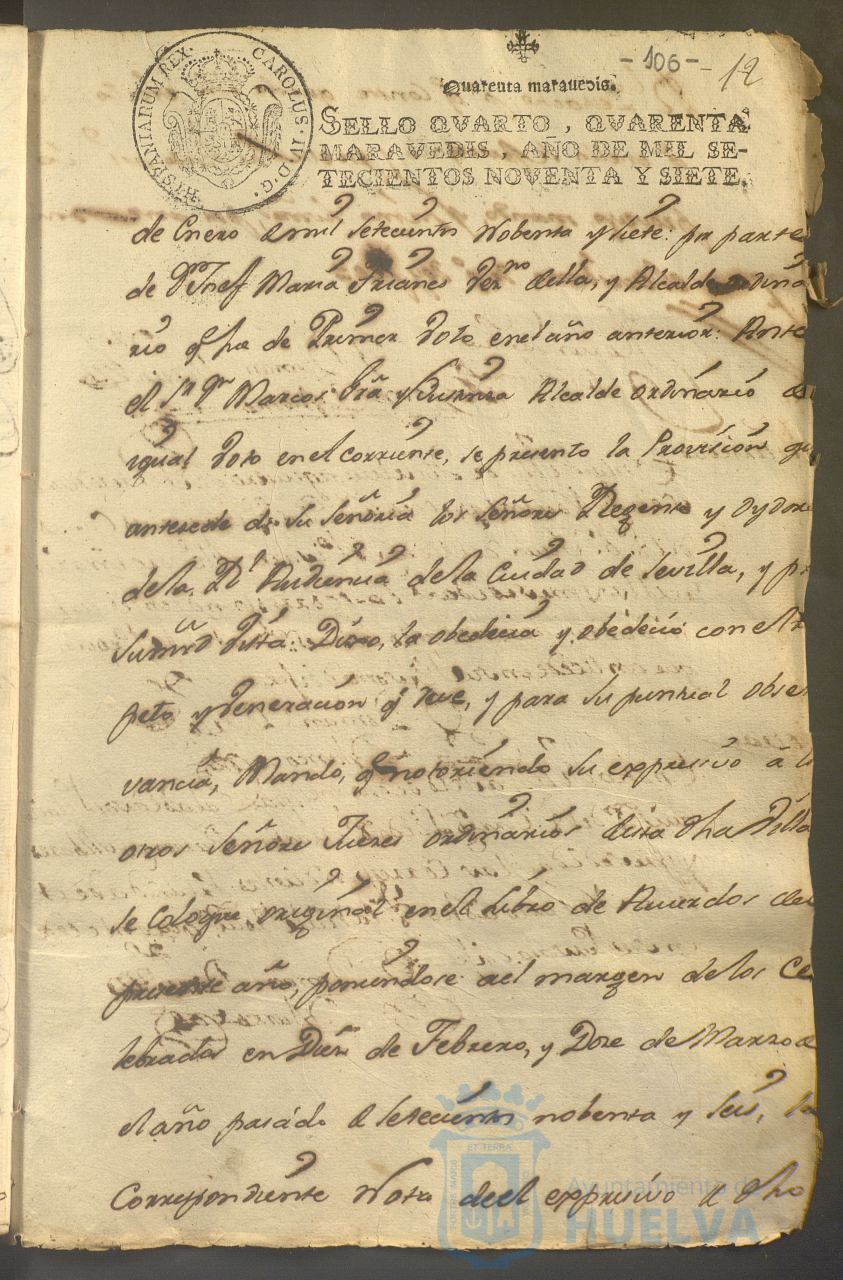 HISPANIARUM REX. CAROLUS. IV. D. G.
- 106 -
12
Quarenta maravedis.
SELLO QVARTO, QVARENTA
MARAVEDIS, AÑO DE MIL SE-
TECIENTOS NOVENTA Y SIETE.
de Enero de mil setecientos Nobenta y siete: por parte
de Dn Josef Maria Trianes Vezno della, y Alcalde ordina
rio qe fue de Primer Voto en el año anterior: Ante
el Sr Dn Marcos Alcalde ordinario de
igual Voto en el corriente, se presento la Provision que
antesede de su Señoria los Señores Regente y Oydore
de la Rl Audiencia de la Ciudad de Sevilla, y pr
su mrd Vista: Dixo, la obedecia y obedecio con el res
peto y Veneracion qe deve, y para su puntual obser
vancia, Mando, qe notoriendo su expresivo â los
otros Señores Jueses ordinarios desta dha Villa
se Coloque original en el Libro de Acuerdos del
presente año, poniendose al margen de los Ce
lebrados en Diez de Febrero, y Doze de Marzo de
el año pasado de setecientos nobenta y seis, la
Correspondiente Nota de el expresivo de dho
PORTUS MARIS ET TERRAE CUSTODIA
Ayuntamiento de
HUELVA